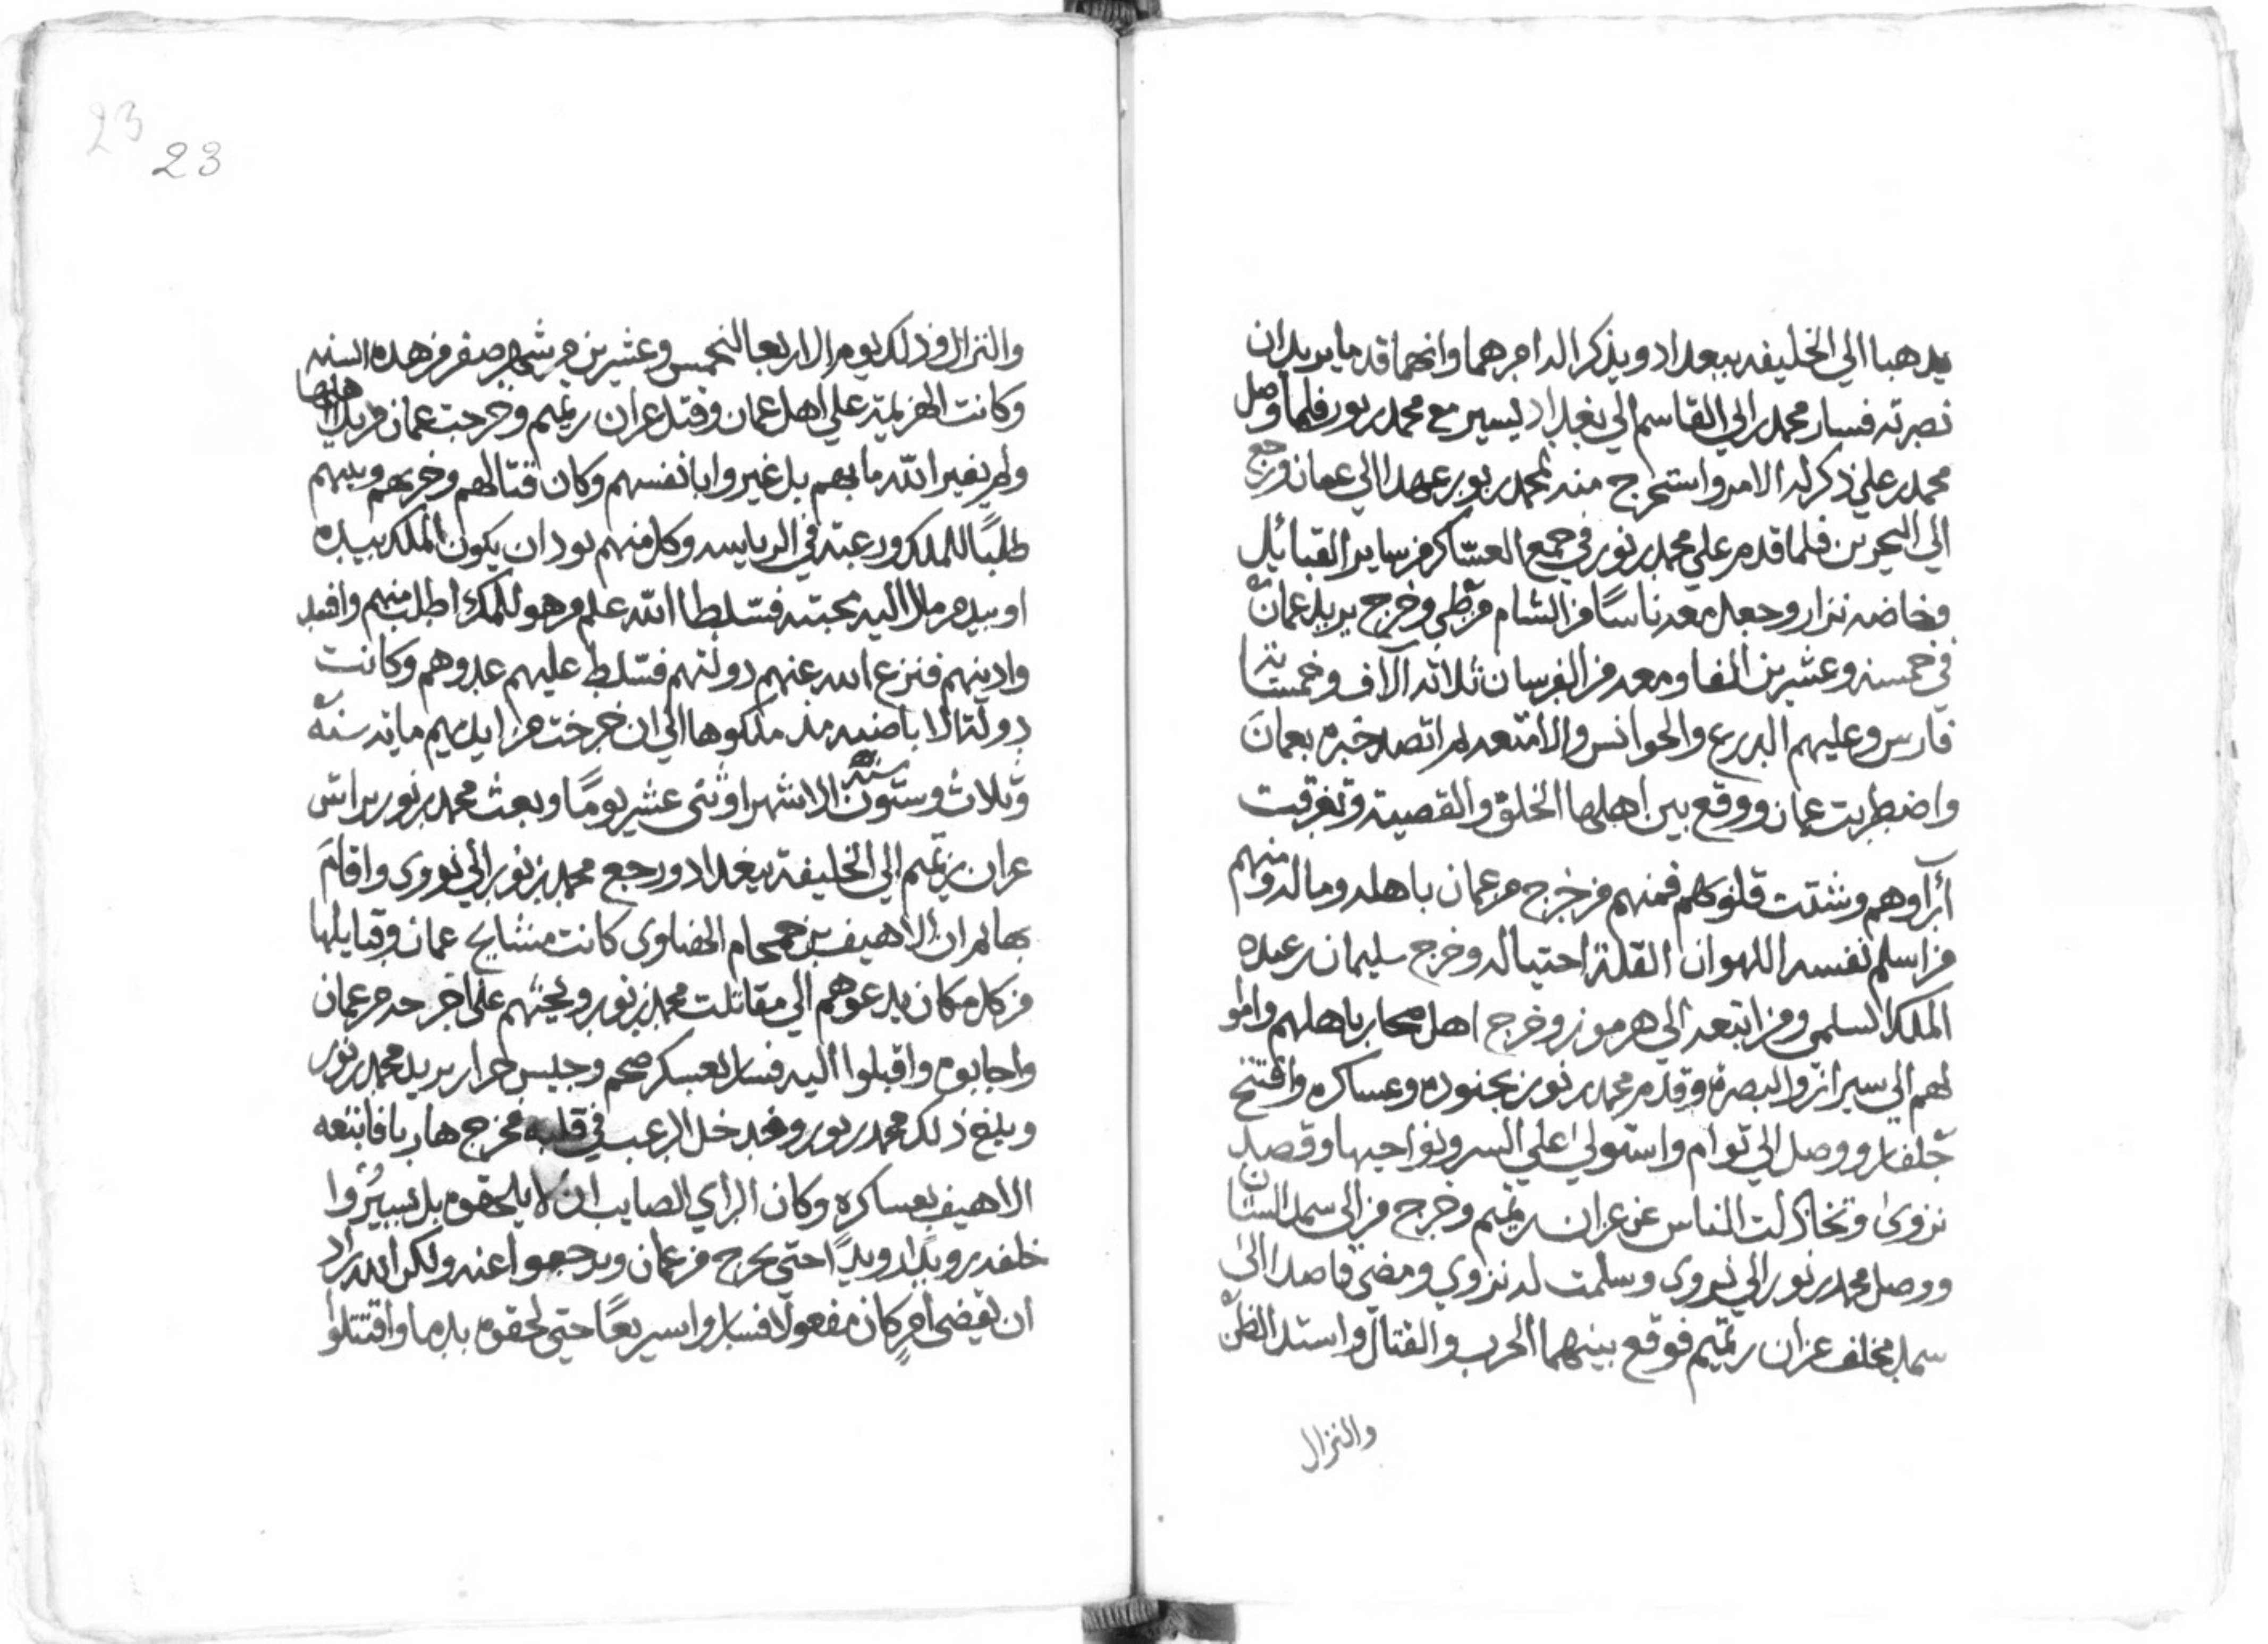 يذهبا الي الخليفه ببغداد ويذكرا له امرهما وانهما قدما يريدان
نصرته فسار محمد بن ابي القاسم الي بغداد ليسير مع محمد بن بور فلما وصل
محمد بن علي ذكر له الامر واستخرج منه لمحمد بن بور عهدا الي عمان ورجع
الي البحرين فلما قدم علي محمد بن نور في جمع العساكر من ساير القبائل
وخاصه نزار وجعل معه ناسًا من الشام من طي وخرج يريد عمان
في خمسه وعشرين الفا ومعه من الفرسان ثلاثه آلاف وخمسمائة
فارس وعليهم الدروع والجوانس والامتعه ثم اتصل خبره بعمان
واضطربت عمان ووقع بين اهلها الخلق والقصبية وتفرقت
آراوهم وشتت قلوبهم فمنهم من خرج من عمان باهله وماله ومنهم
من اسلم نفسه للهوان القلة احتياله وخرج سليمان بن عبد
الملك السلمي ومن اتبعه الي هرموز وخرج اهل صحار باهلهم وامو
لهم الي سيراز والبصرة وقدم محمد بن نور بجنوده وعساكره وافتتح
جلفار ووصل الي توام واستولي علي السر ونواحيها وقصد
نزوي وتخاذلت الناس عن عزان بن تميم وخرج من الي سمد الشان
ووصل محمد بن نور الي نزوي وسلمت له نزوي ومضي قاصدا الي
سمد فخلف عزان بن تميم فوقع بينهما الحرب والقتال واستد الظن
والنزال
23
23
والنزال وذلك يوم الاربعا لخمس وعشرين من شهر صفر من هذه السنه
وكانت الهزيمة علي اهل عمان وقتل عزان بن تميم وخرجت عمان من يد اهلها
ولم يغير الله ما بهم بل غيروا بانفسهم وكان قتالهم وخربهم وبينهم
طلبًا للملك ورغبة في الرياسه وكل منهم يود ان يكون الملك بيده
او بيد من مالا اليه محبته فسلط الله عليهم من هو للملك اطلب منهم وافسد
وادينهم فنزع الله عنهم دولتهم فسلط عليهم عدوهم وكانت
دولة الاباضيه مذ ملكوها الي ان خرجت من ايديهم ماية سنة
وثلاث وستون سنة الا شهرا وثني عشر يومًا وبعث محمد بن نور براس
عزان بن تميم الي الخليفة ببغداد ورجع محمد بن نور الي نزوي واقام
بها ثم ان الاهيف بن حمحام الهناوي كانت مشايخ عمان وقبايلها
من كل مكان يدعوهم الي مقاتلت محمد بن نور ويحثهم علي اخرجه من عمان
واجابوه واقبلوا اليه فسار بعسكر ضخم وجيس جرار يريد محمد بن نور
وبلغ ذلك محمد بن نور وقد دخل الرعب في قلبه فخرج هاربا فاتبعه
الاهيف بعساكره وكان الراي الصايب ان لا يلحقوه بل يسيروا
خلفه رويدا رويدا حتي يخرج من عمان ويرجعوا عنه ولكن الله اراد
ان يقضي امر كان مفعولا فساروا سريعًا حتي لحقوه بدما واقتتلوا